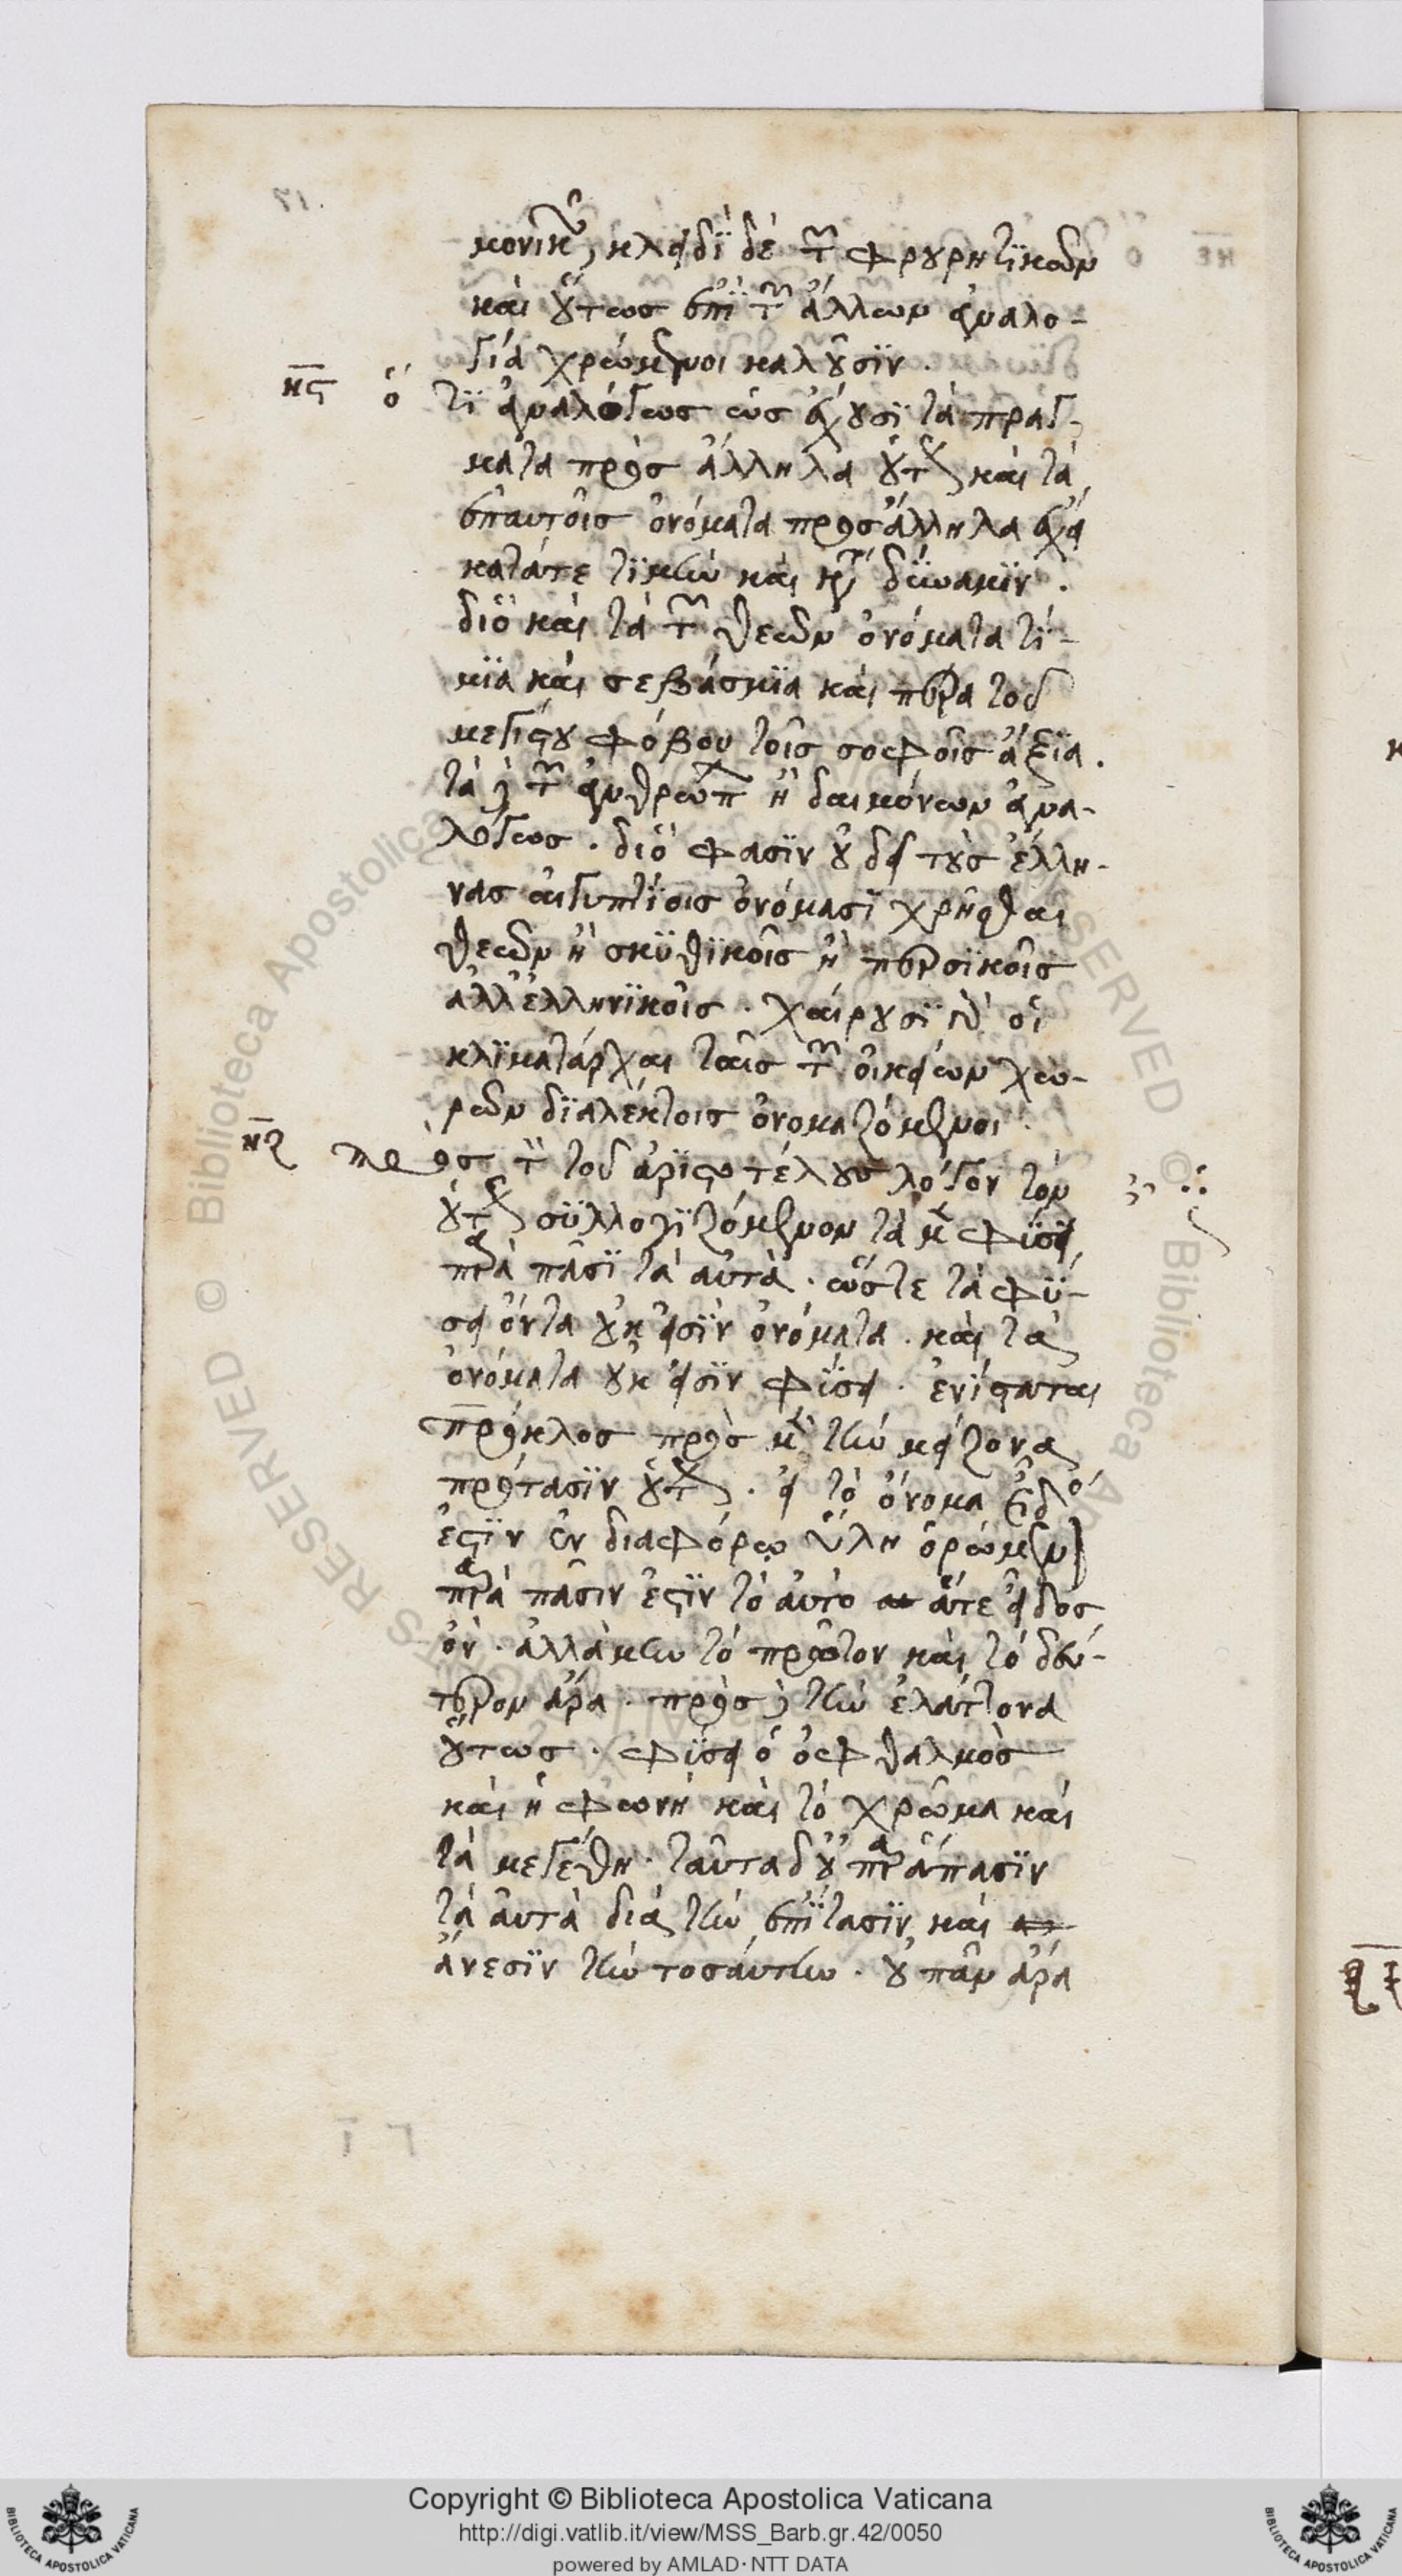 μονικῶν, κλειδὶ δὲ τῶν φρουρητικῶν
καὶ οὕτως ἐπὶ τῶν ἄλλων ἀναλο-
γία χρώμενοι καλοῦσιν.
νϛ ὅτι ἀναλόγως ὡς ἔχουσι τὰ πράγ-
ματα πρὸς ἄλληλα οὕτως καὶ τὰ
ἐπ αυτοῖς ὀνόματα πρὸς ἄλληλα ἔχει
κατά τε τιμὴν καὶ κατὰ δύναμιν.
διὸ καὶ τὰ τῶν θεῶν ὀνόματα τί-
μια καὶ σεβάσμια καὶ περα τοῦ
μεγίστου φόβου τοῖς σοφοῖς ἄξια.
τὰ δὲ τῶν ἀνθρώπων ἢ δαιμόνων ἀνα-
λόγως. διό φασιν οὐ δεῖ τοὺς ἕλλη-
νας αἰγυπτίοις ὀνόμασι χρῆσθαι
θεῶν ἢ σκυθικοῖς ἢ περσικοῖς
ἀλλ ἑλληνικοῖς. χαίρουσι γὰρ οἱ
κλιματάρχαι ταῖς τῶν οἰκείων χω-
ρῶν διαλέκτοις ὀνομαζόμενοι.
νζ πρὸς τὸν τοῦ ἀριστοτέλους λόγον τὸν
οὕτως συλλογιζόμενον τὰ μὲν φύσει
παρὰ πᾶσι τὰ αὐτά. ὥστε τὰ φύ-
σει ὄντα οὐκ εἰσὶν ὀνόματα. καὶ τὰ
ὀνόματα οὐκ εἰσὶν φύσει. ἐνίσταται
πρόκλος πρὸς μὲν τὴν μείζονα
πρότασιν οὕτως. εἰ τὸ ὄνομα εἶδος
ἐστὶν ἐν διαφόρῳ ὕλῃ ὁρώμενον
παρὰ πᾶσιν ἐστὶν τὸ αὐτὸ ἅτε εἶδος
ὄν. ἀλλὰ μὴν τὸ πρῶτον καὶ τὸ δεύ-
τερον ἄρα. πρὸς δὲ τὴν ἐλάττονα
οὕτως. φύσει ὁ ὀφθαλμὸς
καὶ ἡ φωνὴ καὶ τὸ χρῶμα καὶ
τὰ μεγέθη. ταῦτα δ οὐ παρὰ πᾶσιν
τὰ αὐτὰ διὰ τὴν ἐπίτασιν καὶ
ἄνεσιν τὴν τοσαύτην. οὐ πᾶν ἄρα
Copyright © Biblioteca Apostolica Vaticana
http://digi.vatlib.it/view/MSS_Barb.gr.42/0050
powered by AMLAD · NTT DATA